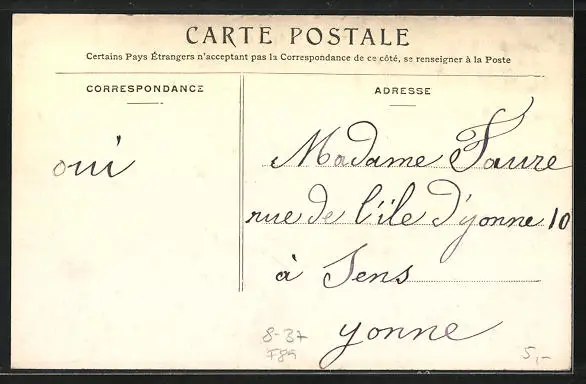 CARTE POSTALE
Certains Pays Étrangers n'acceptant pas la Correspondance de ce côté, se renseigner à la Poste
CORRESPONDANCE
ADRESSE
oui
Madame Faure
rue de l'île d'yonne 10
à Sens
yonne
8-37
F89
5,-